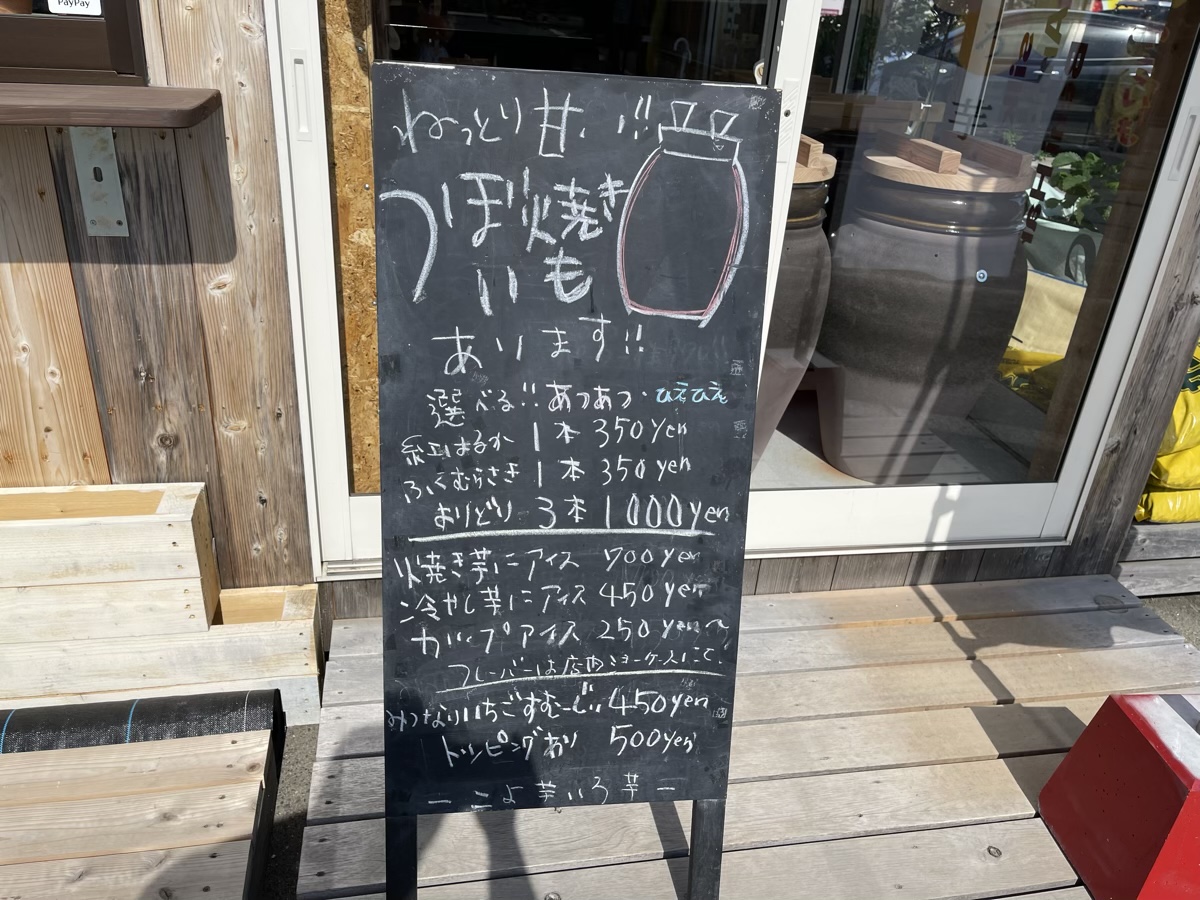 PayPay
ねっとり甘い!!
つぼ焼き
いも
あります!!
選べる!! あつあつ・ひえひえ
紅はるか 1本 350yen
ふくむらさき 1本 350yen
よりどり 3本 1000yen
焼き芋にアイス 700yen
冷やし芋にアイス 450yen
カップアイス 250yen〜
フレーバーは店内ショーケースにて。
みつなりいちごすむーじぃ 450yen
トッピングあり 500yen
ー こよ芋いろ芋 ー